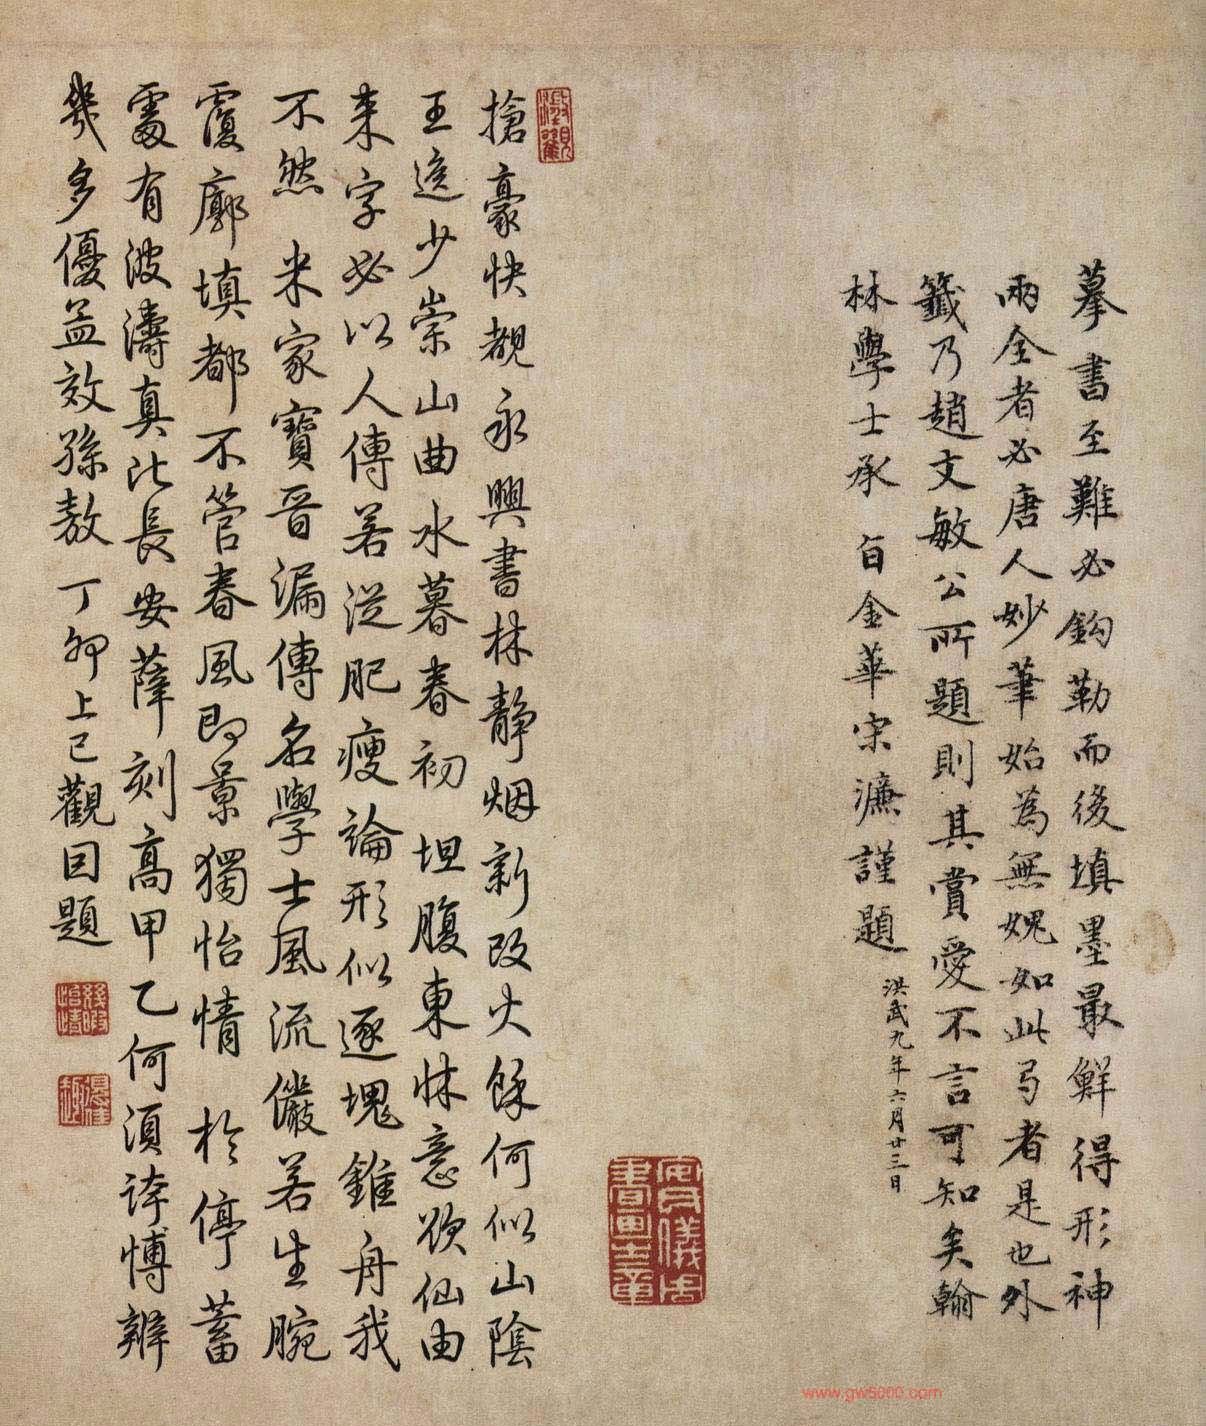 摹書至難必鈎勒而後填墨最鮮得形神
兩全者必唐人妙筆始為無媿如此弓者是也外
籤乃趙文敏公所題則其賞愛不言可知矣翰
林學士承 旨金華宋濂謹題 洪武九年六月廿三日
搶豪快覩永興書林靜烟新改火餘何似山陰
王逸少崇山曲水暮春初 坦腹東牀意欲仙由
來字必以人傳若從肥瘦論形似逐塊錐舟我
不然 米家寶晋漏傳名學士風流儼若生腕
覆廓填都不管春風即景獨怡情 於停蓄
處有波濤真此長安薛刻高甲乙何須誇博辨
幾多優孟效孫敖 丁卯上巳觀因題
幾暇怡情
寶儀周書畫之章
www.gw5000.com